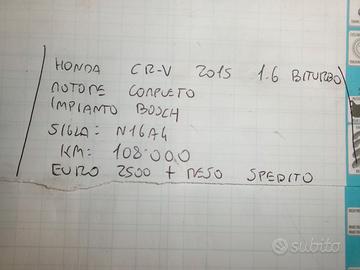 HONDA CR-V 2015 1.6 BITURBO
MOTORE COMPLETO
IMPIANTO BOSCH
SIGLA: N16A4
KM: 108.000
EURO 2500 + RESO SPEDITO
subito